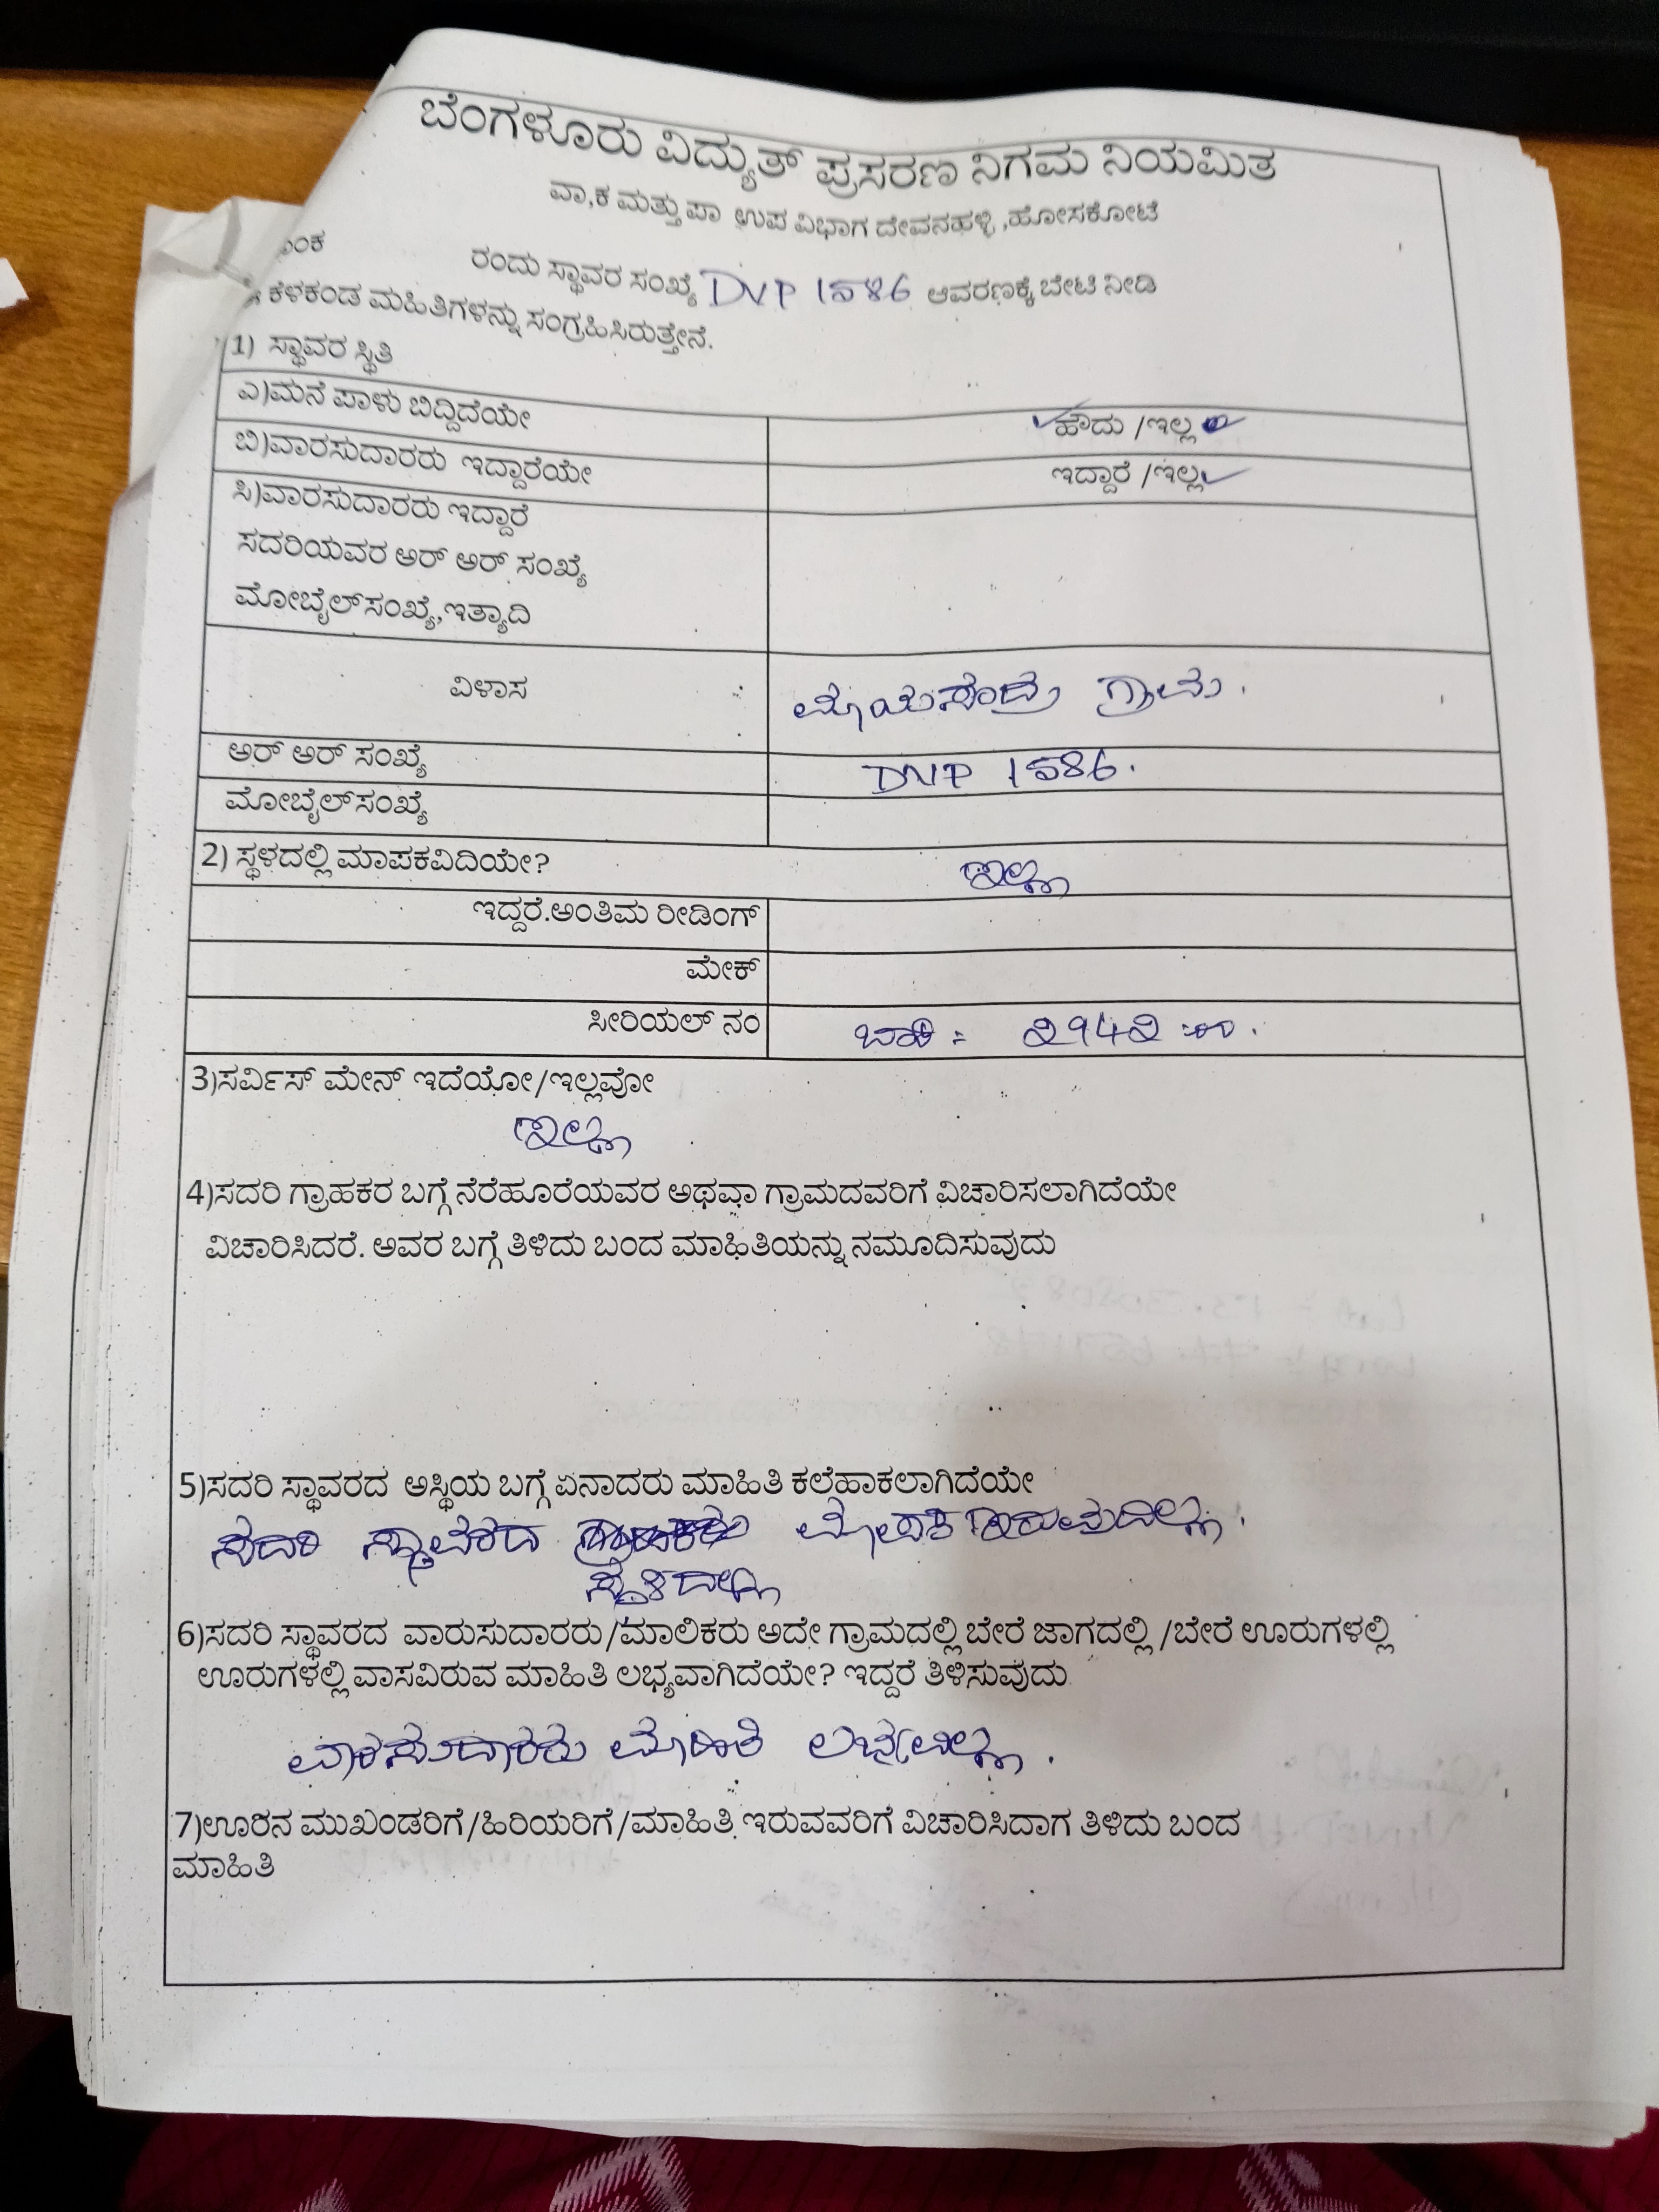 ಬೆಂಗಳೂರು ವಿದ್ಯುತ್ ಪ್ರಸರಣ ನಿಗಮ ನಿಯಮಿತ
ವಾ,ಕ ಮತ್ತು ಪಾ ಉಪ ವಿಭಾಗ ದೇವನಹಳ್ಳಿ ,ಹೋಸಕೋಟೆ
ರಂದು ಸ್ಥಾವರ ಸಂಖ್ಯೆ DVP 1586 ಆವರಣಕ್ಕೆ ಬೇಟಿ ನೀಡಿ
ಕೆಳಕಂಡ ಮಹಿತಿಗಳನ್ನು ಸಂಗ್ರಹಿಸಿರುತ್ತೇನೆ.
1) ಸ್ಥಾವರ ಸ್ಥಿತಿ
ಎ)ಮನೆ ಪಾಳು ಬಿದ್ದಿದೆಯೇ ಹೌದು /ಇಲ್ಲ
ಬಿ)ವಾರಸುದಾರರು ಇದ್ದಾರೆಯೇ ಇದ್ದಾರೆ /ಇಲ್ಲ
ಸಿ)ವಾರಸುದಾರರು ಇದ್ದಾರೆ
ಸದರಿಯವರ ಅರ್ ಅರ್ ಸಂಖ್ಯೆ
ಮೋಬೈಲ್ ಸಂಖ್ಯೆ,ಇತ್ಯಾದಿ
ವಿಳಾಸ ಗ್ರಾಮ.
ಅರ್ ಅರ್ ಸಂಖ್ಯೆ DVP 1586.
ಮೋಬೈಲ್ ಸಂಖ್ಯೆ
2) ಸ್ಥಳದಲ್ಲಿ ಮಾಪಕವಿದಿಯೇ? ಇಲ್ಲ
ಇದ್ದರೆ.ಅಂತಿಮ ರೀಡಿಂಗ್
ಮೇಕ್
ಸೀರಿಯಲ್ ನಂ ಬಾಕಿ = 2942=00.
3)ಸರ್ವಿಸ್ ಮೇನ್ ಇದೆಯೋ/ಇಲ್ಲವೋ
ಇಲ್ಲ
4)ಸದರಿ ಗ್ರಾಹಕರ ಬಗ್ಗೆ ನೆರೆಹೂರೆಯವರ ಅಥವಾ ಗ್ರಾಮದವರಿಗೆ ವಿಚಾರಿಸಲಾಗಿದೆಯೇ
ವಿಚಾರಿಸಿದರೆ. ಅವರ ಬಗ್ಗೆ ತಿಳಿದು ಬಂದ ಮಾಹಿತಿಯನ್ನು ನಮೂದಿಸುವುದು
5)ಸದರಿ ಸ್ಥಾವರದ ಅಸ್ಥಿಯ ಬಗ್ಗೆ ಏನಾದರು ಮಾಹಿತಿ ಕಲೆಹಾಕಲಾಗಿದೆಯೇ
ಸದರಿ ಸ್ಥಾವರದ ಮಾಪಕ ಇರುವುದಿಲ್ಲ.
ಸ್ಥಳದಲ್ಲಿ
6)ಸದರಿ ಸ್ಥಾವರದ ವಾರುಸುದಾರರು/ಮಾಲಿಕರು ಅದೇ ಗ್ರಾಮದಲ್ಲಿ ಬೇರೆ ಜಾಗದಲ್ಲಿ /ಬೇರೆ ಊರುಗಳಲ್ಲಿ
ಊರುಗಳಲ್ಲಿ ವಾಸವಿರುವ ಮಾಹಿತಿ ಲಭ್ಯವಾಗಿದೆಯೇ? ಇದ್ದರೆ ತಿಳಿಸುವುದು
ವಾರಸುದಾರರು ಮಾಹಿತಿ ಲಭ್ಯವಿಲ್ಲ.
7)ಊರಿನ ಮುಖಂಡರಿಗೆ/ಹಿರಿಯರಿಗೆ/ಮಾಹಿತಿ ಇರುವವರಿಗೆ ವಿಚಾರಿಸಿದಾಗ ತಿಳಿದು ಬಂದ
ಮಾಹಿತಿ